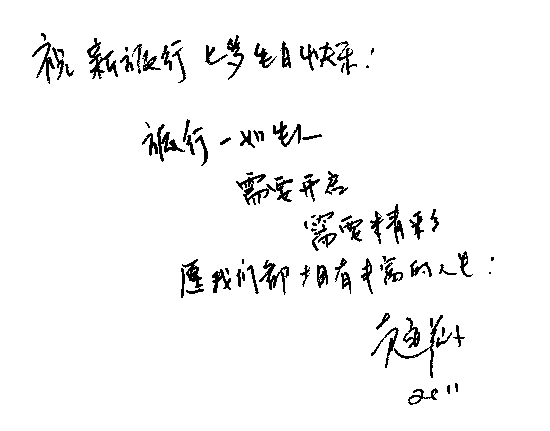 祝新旅行七岁生日快乐!
旅行一如生人
需要开启
需要精彩
愿我们都拥有丰富的人生!
2011